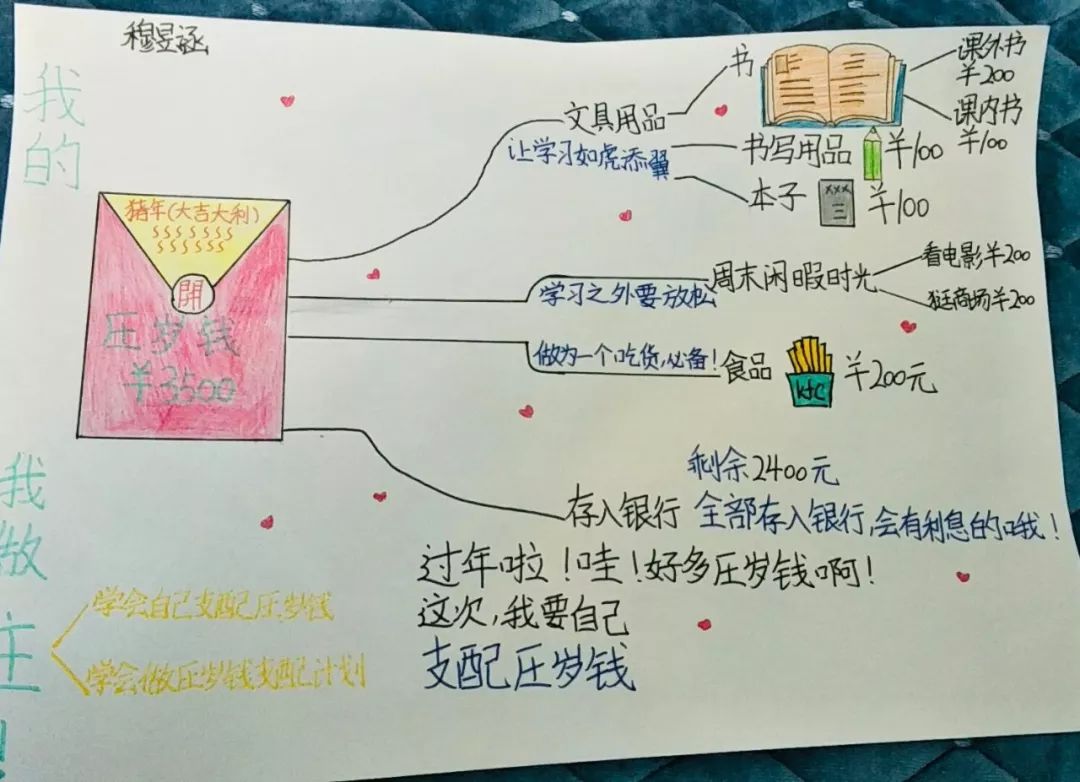 穆昱涵
我的
我做主！
猪年(大吉大利)
開
压岁钱
￥3500
文具用品
让学习如虎添翼
书
课外书
￥200
课内书
￥100
书写用品 ￥100
本子 ￥100
学习之外要放松
周末闲暇时光
看电影￥200
逛商场￥200
做为一个吃货,必备!
食品
kfc
￥200元
剩余2400元
存入银行 全部存入银行,会有利息的哦!
过年啦!哇!好多压岁钱啊!
这次,我要自己
支配压岁钱
学会自己支配压岁钱
学会做压岁钱支配计划